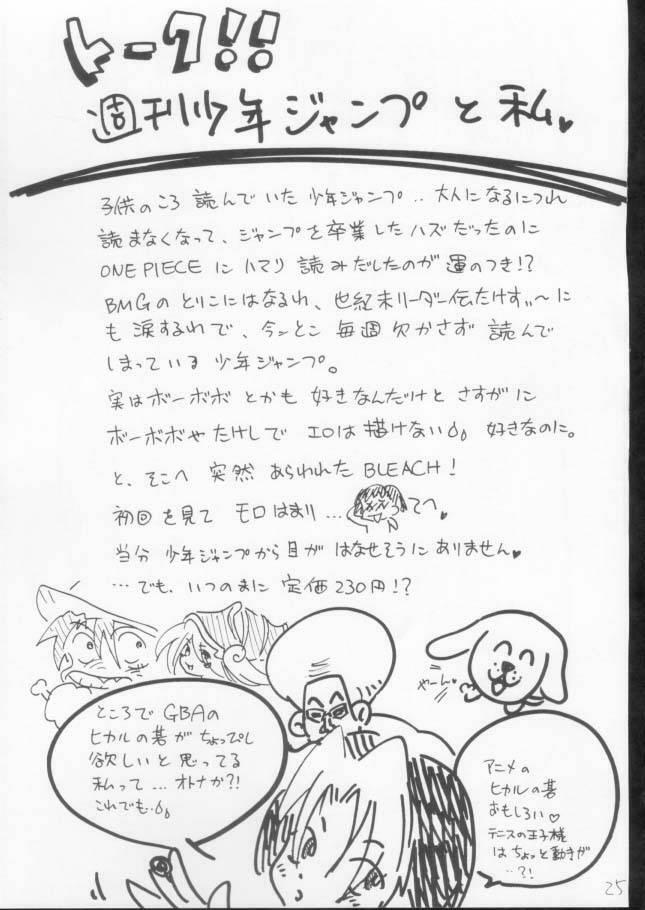 トーク!!
週刊少年ジャンプと私♥
子供のころ 読んでいた 少年ジャンプ‥大人になるにつれ
読まなくなって、ジャンプを卒業したハズだったのに
ONE PIECEに ハマリ 読みだしたのが 運のつき!?
BMGの とりこにはなるわ、世紀末リーダー伝たけすぃ〜に
も 涙するわで、今んとこ 毎週 欠かさず 読んで
しまっている 少年ジャンプ。
実はボーボボ とかも 好きなんだけど さすがに
ボーボボや たけしで エロは描けない 好きなのに。
と、そこへ 突然 あらわれた BLEACH!
初回を見て モロはまり… てへ♥
当分 少年ジャンプから 目が はなせそうに ありません♥
…でも、いつのまに 定価230円!?
やーん
ところで GBAの
ヒカルの碁が ちょっぴし
欲しいと 思ってる
私って… オトナか?!
これでも‥
アニメの
ヒカルの碁
おもしろい♡
テニスの王子様
は ちょっと 動きが
‥?!
25